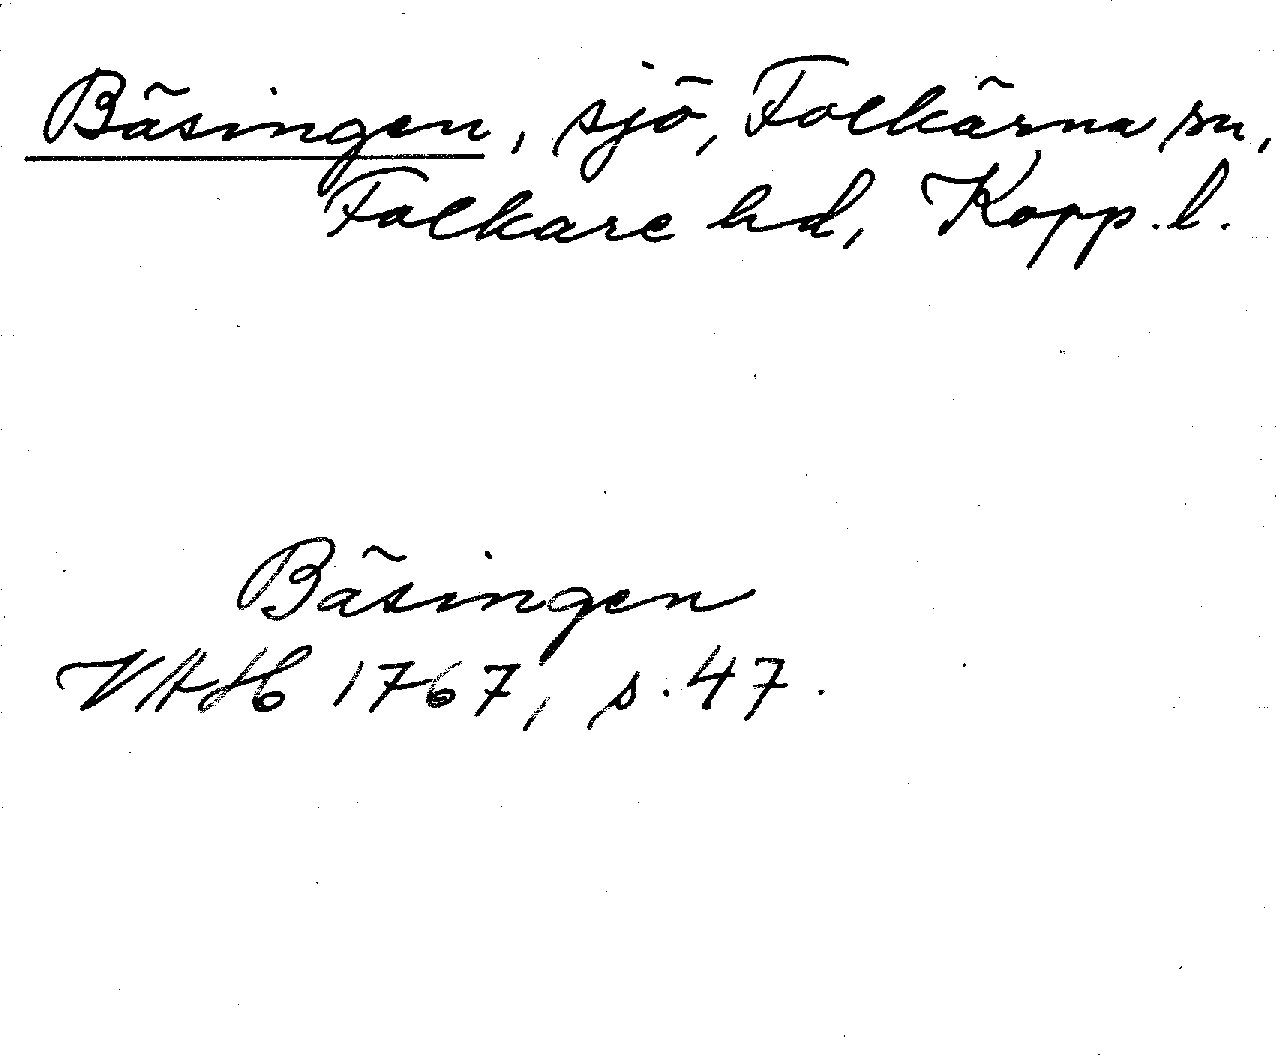 Bäsingen, sjö, Folkärna sn,
Folkare hd, Kopp. l.
Bäsingen
VAH 1767, s. 47.